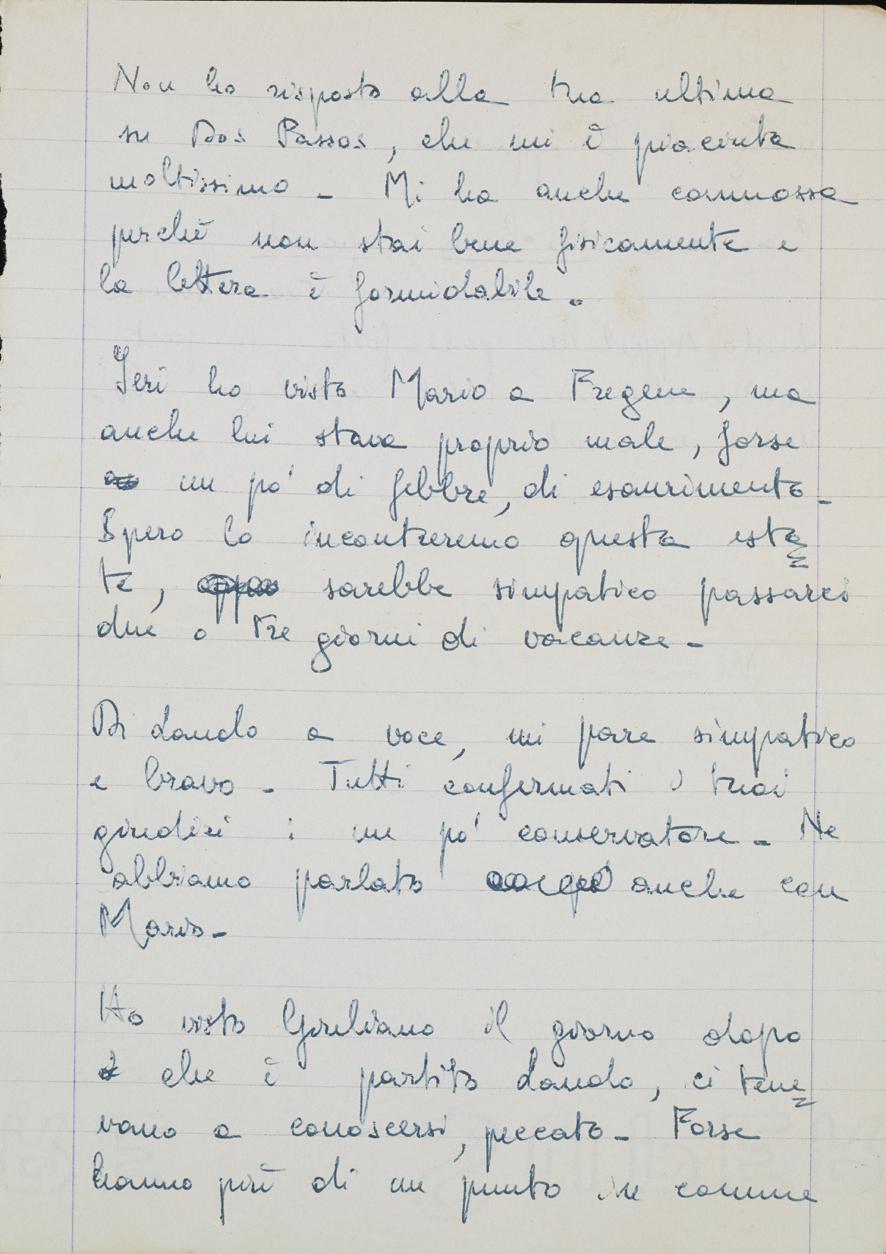 Non ho risposto alla tua ultima
su Dos Passos, che mi è piaciuta
moltissimo - Mi ha anche commossa
perchè non stai bene fisicamente e
la lettera è formidabile.
Ieri ho visto Mario a Fregene, ma
anche lui stava proprio male, forse
un po' di febbre, di esaurimento -
Spero lo incontreremo questa esta=
te, sarebbe simpatico passarci
due o tre giorni di vacanze -
Di Lando a voce, mi pare simpatico
e bravo - Tutti confermati i tuoi
giudizi : un po' conservatore - Ne
abbiamo parlato anche con
Mario -
Ho visto Giuliano il giorno dopo
che è partito Lando, ci tene=
vano a conoscersi, peccato - Forse
hanno più di un punto in comune